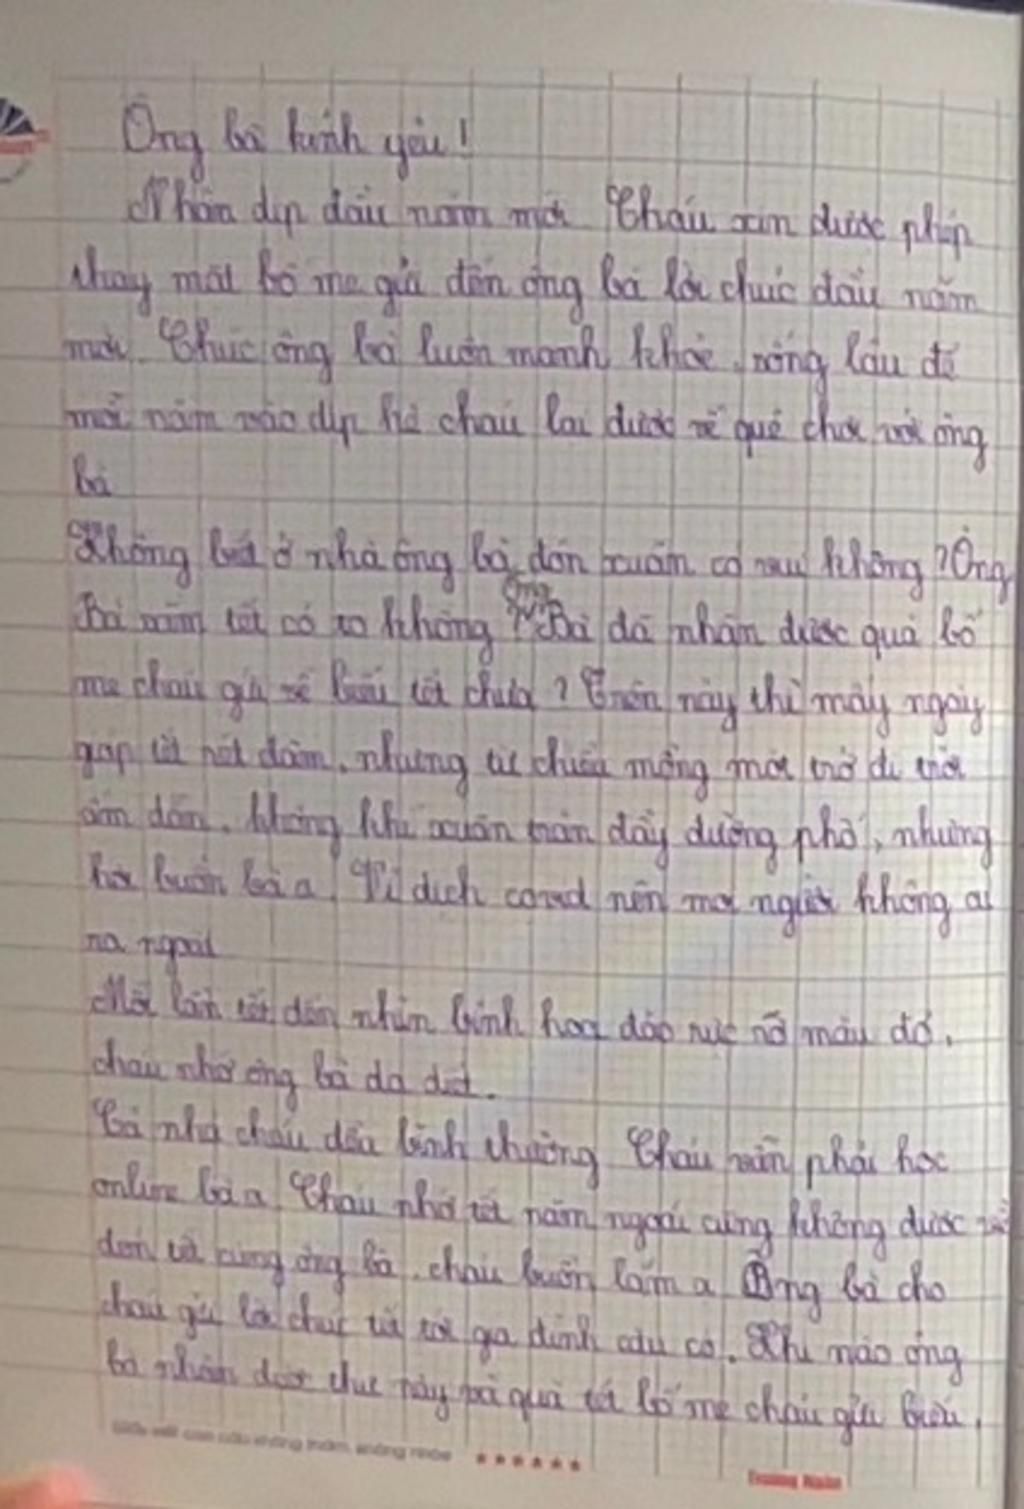 Ông bà kính yêu!
Nhân dịp đầu năm mới Cháu xin được phép
thay mặt bố mẹ gửi đến ông bà lời chúc đầu năm
mới. Chúc ông bà luôn mạnh khỏe, sống lâu để
mỗi năm vào dịp hè cháu lại được về quê chơi với ông
bà
Không biết ở nhà ông bà đón xuân có vui không? Ông
Bà năm tết có to không? Ông Bà đã nhận được quà bố
mẹ cháu gửi về biếu tết chưa? Trên này thì mấy ngày
giáp tết rét đậm, nhưng từ chiều mồng một trở đi trời
ấm dần, không khí xuân tràn đầy đường phố, nhưng
hơi buồn bà ạ. Vì dịch covid nên mọi người không ai
ra ngoài
Mỗi lần tết đến nhìn bình hoa đào rực rỡ màu đỏ,
cháu nhớ ông bà da diết.
Cả nhà cháu đều bình thường Cháu vẫn phải học
online bà ạ. Cháu nhớ tết năm ngoái cũng không được về
đón tết cùng ông bà, cháu buồn lắm ạ Ông bà cho
cháu gửi lời chúc tết tới gia đình cậu cô. Khi nào ông
bà nhận được thư này và quà tết bố mẹ cháu gửi biếu,
Trường